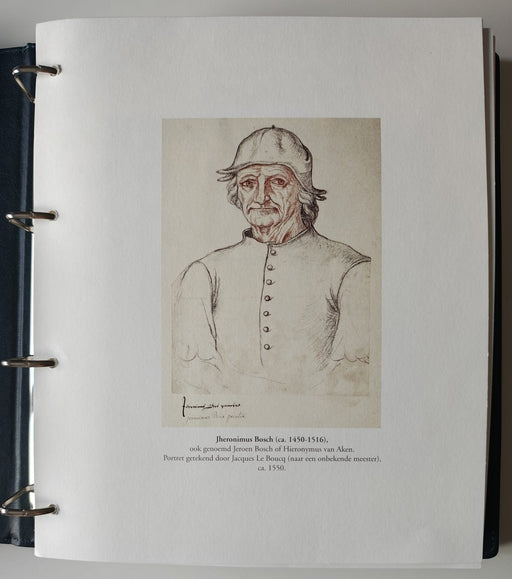 Jheronimus Bosch (ca. 1450-1516),
ook genoemd Jeroen Bosch of Hieronymus van Aken.
Portret getekend door Jacques Le Boucq (naar een onbekende meester),
ca. 1550.